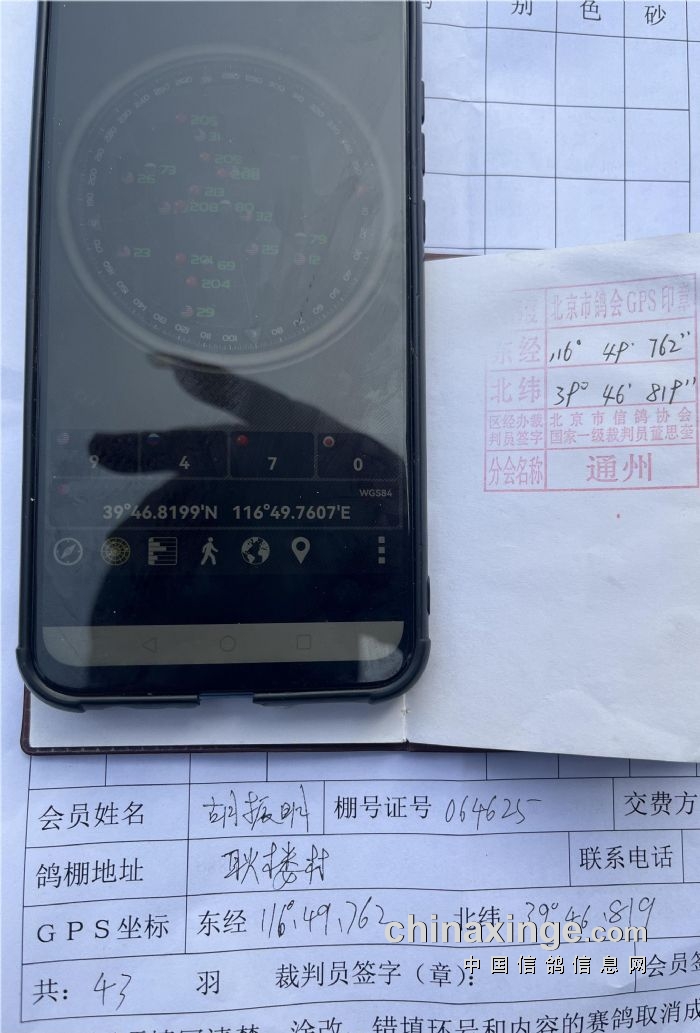 别 色 砂
205
31
205
73
26
213
208 80
32
79
23
25
201 69
12
204
29
9 4 7 0
WGS84
39°46.8199'N 116°49.7607'E
北京市鸽会GPS印章
东经 116° 49' 762"
北纬 39° 46' 819"
区经办裁判员签字 北京市信鸽协会国家一级裁判员董思奎
分会名称 通州
会员姓名 胡振明 棚号证号 064625 交费方
鸽棚地址 耿楼村 联系电话
GPS坐标 东经 116°.49.762 北纬 39°46.819
chinaxinge.com
中国信鸽信息网
共: 43 羽 裁判员签字（章）: 会员签
涂改、错填环号和内容的赛鸽取消成